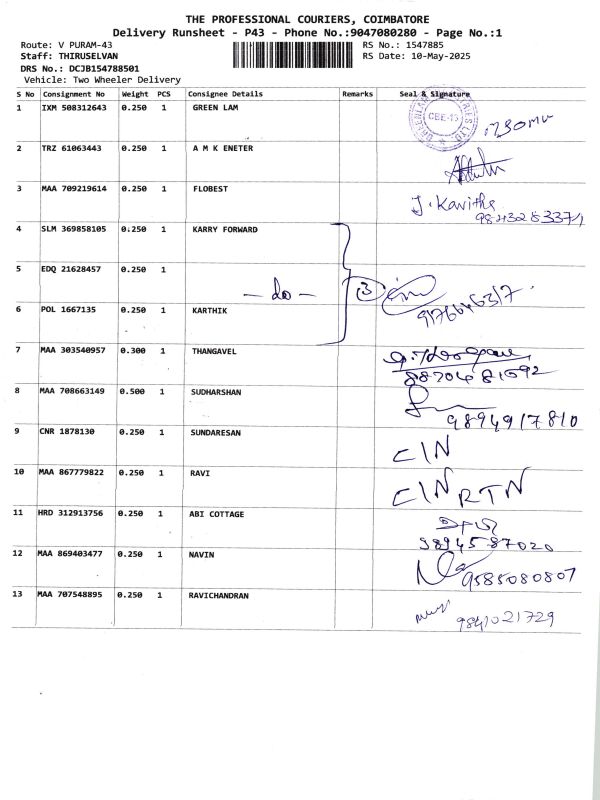 THE PROFESSIONAL COURIERS, COIMBATORE
Delivery Runsheet - P43 - Phone No.:9047080280 - Page No.:1
Route: V PURAM-43 RS No.: 1547885
Staff: THIRUSELVAN RS Date: 10-May-2025
DRS No.: DCJB154788501
Vehicle: Two Wheeler Delivery
S No Consignment No Weight PCS Consignee Details Remarks Seal & Signature
1 IXM 508312643 0.250 1 GREEN LAM CBE-13
2 TRZ 61063443 0.250 1 A M K ENETER
3 MAA 709219614 0.250 1 FLOBEST J. Kavitha
9843283371
4 SLM 369858105 0.250 1 KARRY FORWARD
5 EDQ 21628457 0.250 1
— do — 3
6 POL 1667135 0.250 1 KARTHIK
7 MAA 303540957 0.300 1 THANGAVEL
8870481592
8 MAA 708663149 0.500 1 SUDHARSHAN
9894917810
9 CNR 1878130 0.250 1 SUNDARESAN C/N
10 MAA 867779822 0.250 1 RAVI C/N RTN
11 HRD 312913756 0.250 1 ABI COTTAGE
9894587020
12 MAA 869403477 0.250 1 NAVIN
9585080807
13 MAA 707548895 0.250 1 RAVICHANDRAN
9841021729